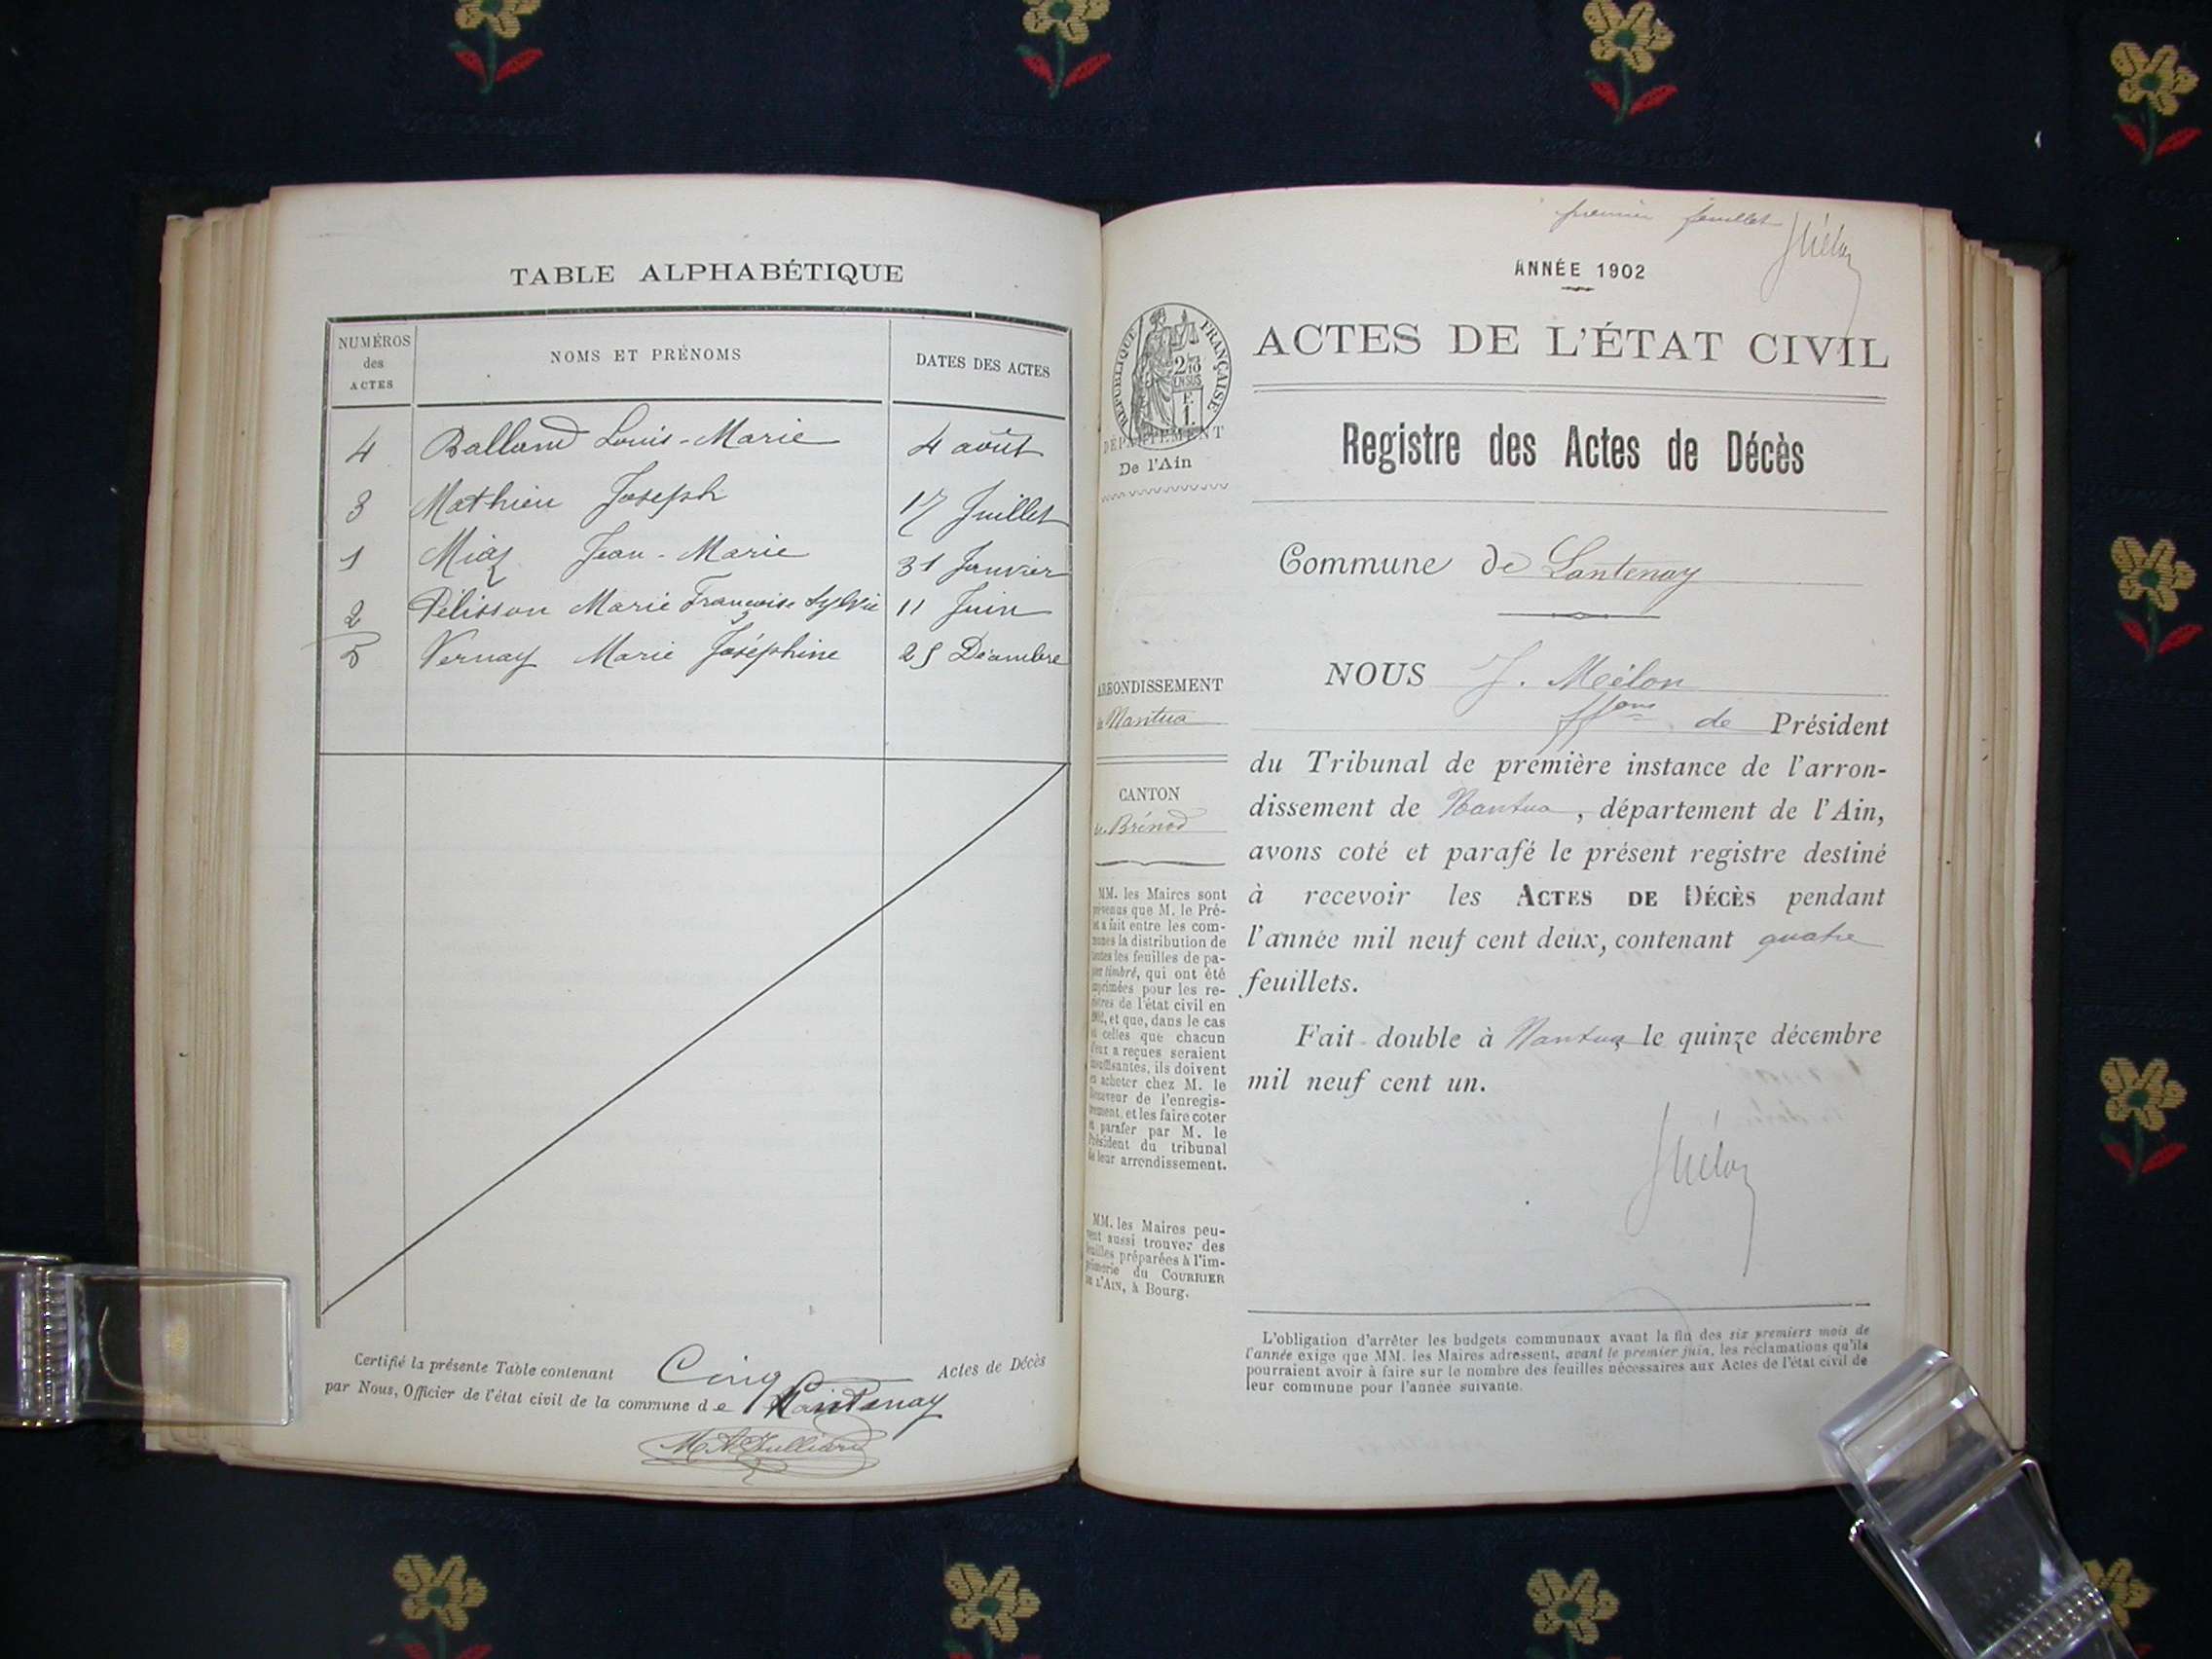 TABLE ALPHABÉTIQUE
NUMÉROS des ACTES
NOMS ET PRÉNOMS
DATES DES ACTES
4 Balland Louis-Marie 4 août
3 Mathieu Joseph 17 Juillet
1 Miaz Jean-Marie 31 Janvier
2 Pélisson Marie Françoise Sylvie 11 Juin
5 Vernay Marie Joséphine 25 Décembre
Certifié la présente Table contenant Cinq Actes de Décès
par Nous, Officier de l'état civil de la commune de Lantenay
premier feuillet
ANNÉE 1902
RÉPUBLIQUE FRANÇAISE
2/10 EN SUS
ACTES DE L'ÉTAT CIVIL
DÉPARTEMENT
De l'Ain
Registre des Actes de Décès
Commune de Lantenay
NOUS J. Mélon
ffons de Président
du Tribunal de première instance de l'arron-
dissement de Nantua, département de l'Ain,
avons coté et parafé le présent registre destiné
à recevoir les ACTES DE DÉCÈS pendant
l'année mil neuf cent deux, contenant quatre
feuillets.
Fait double à Nantua le quinze décembre
mil neuf cent un.
ARRONDISSEMENT
de Nantua
CANTON
de Brénod
MM. les Maires sont
prévenus que M. le Pré-
fet a fait entre les com-
munes la distribution de
toutes les feuilles de pa-
pier timbré, qui ont été
imprimées pour les re-
gistres de l'état civil en
1902, et que, dans le cas
où celles que chacun
d'eux a reçues seraient
insuffisantes, ils doivent
en acheter chez M. le
Receveur de l'enregis-
trement, et les faire coter
et parafer par M. le
Président du tribunal
de leur arrondissement.
MM. les Maires peu-
vent aussi trouver des
feuilles préparées à l'im-
primerie du COURRIER
DE L'AIN, à Bourg.
L'obligation d'arrêter les budgets communaux avant la fin des six premiers mois de
l'année exige que MM. les Maires adressent, avant le premier juin, les réclamations qu'ils
pourraient avoir à faire sur le nombre des feuilles nécessaires aux Actes de l'état civil de
leur commune pour l'année suivante.